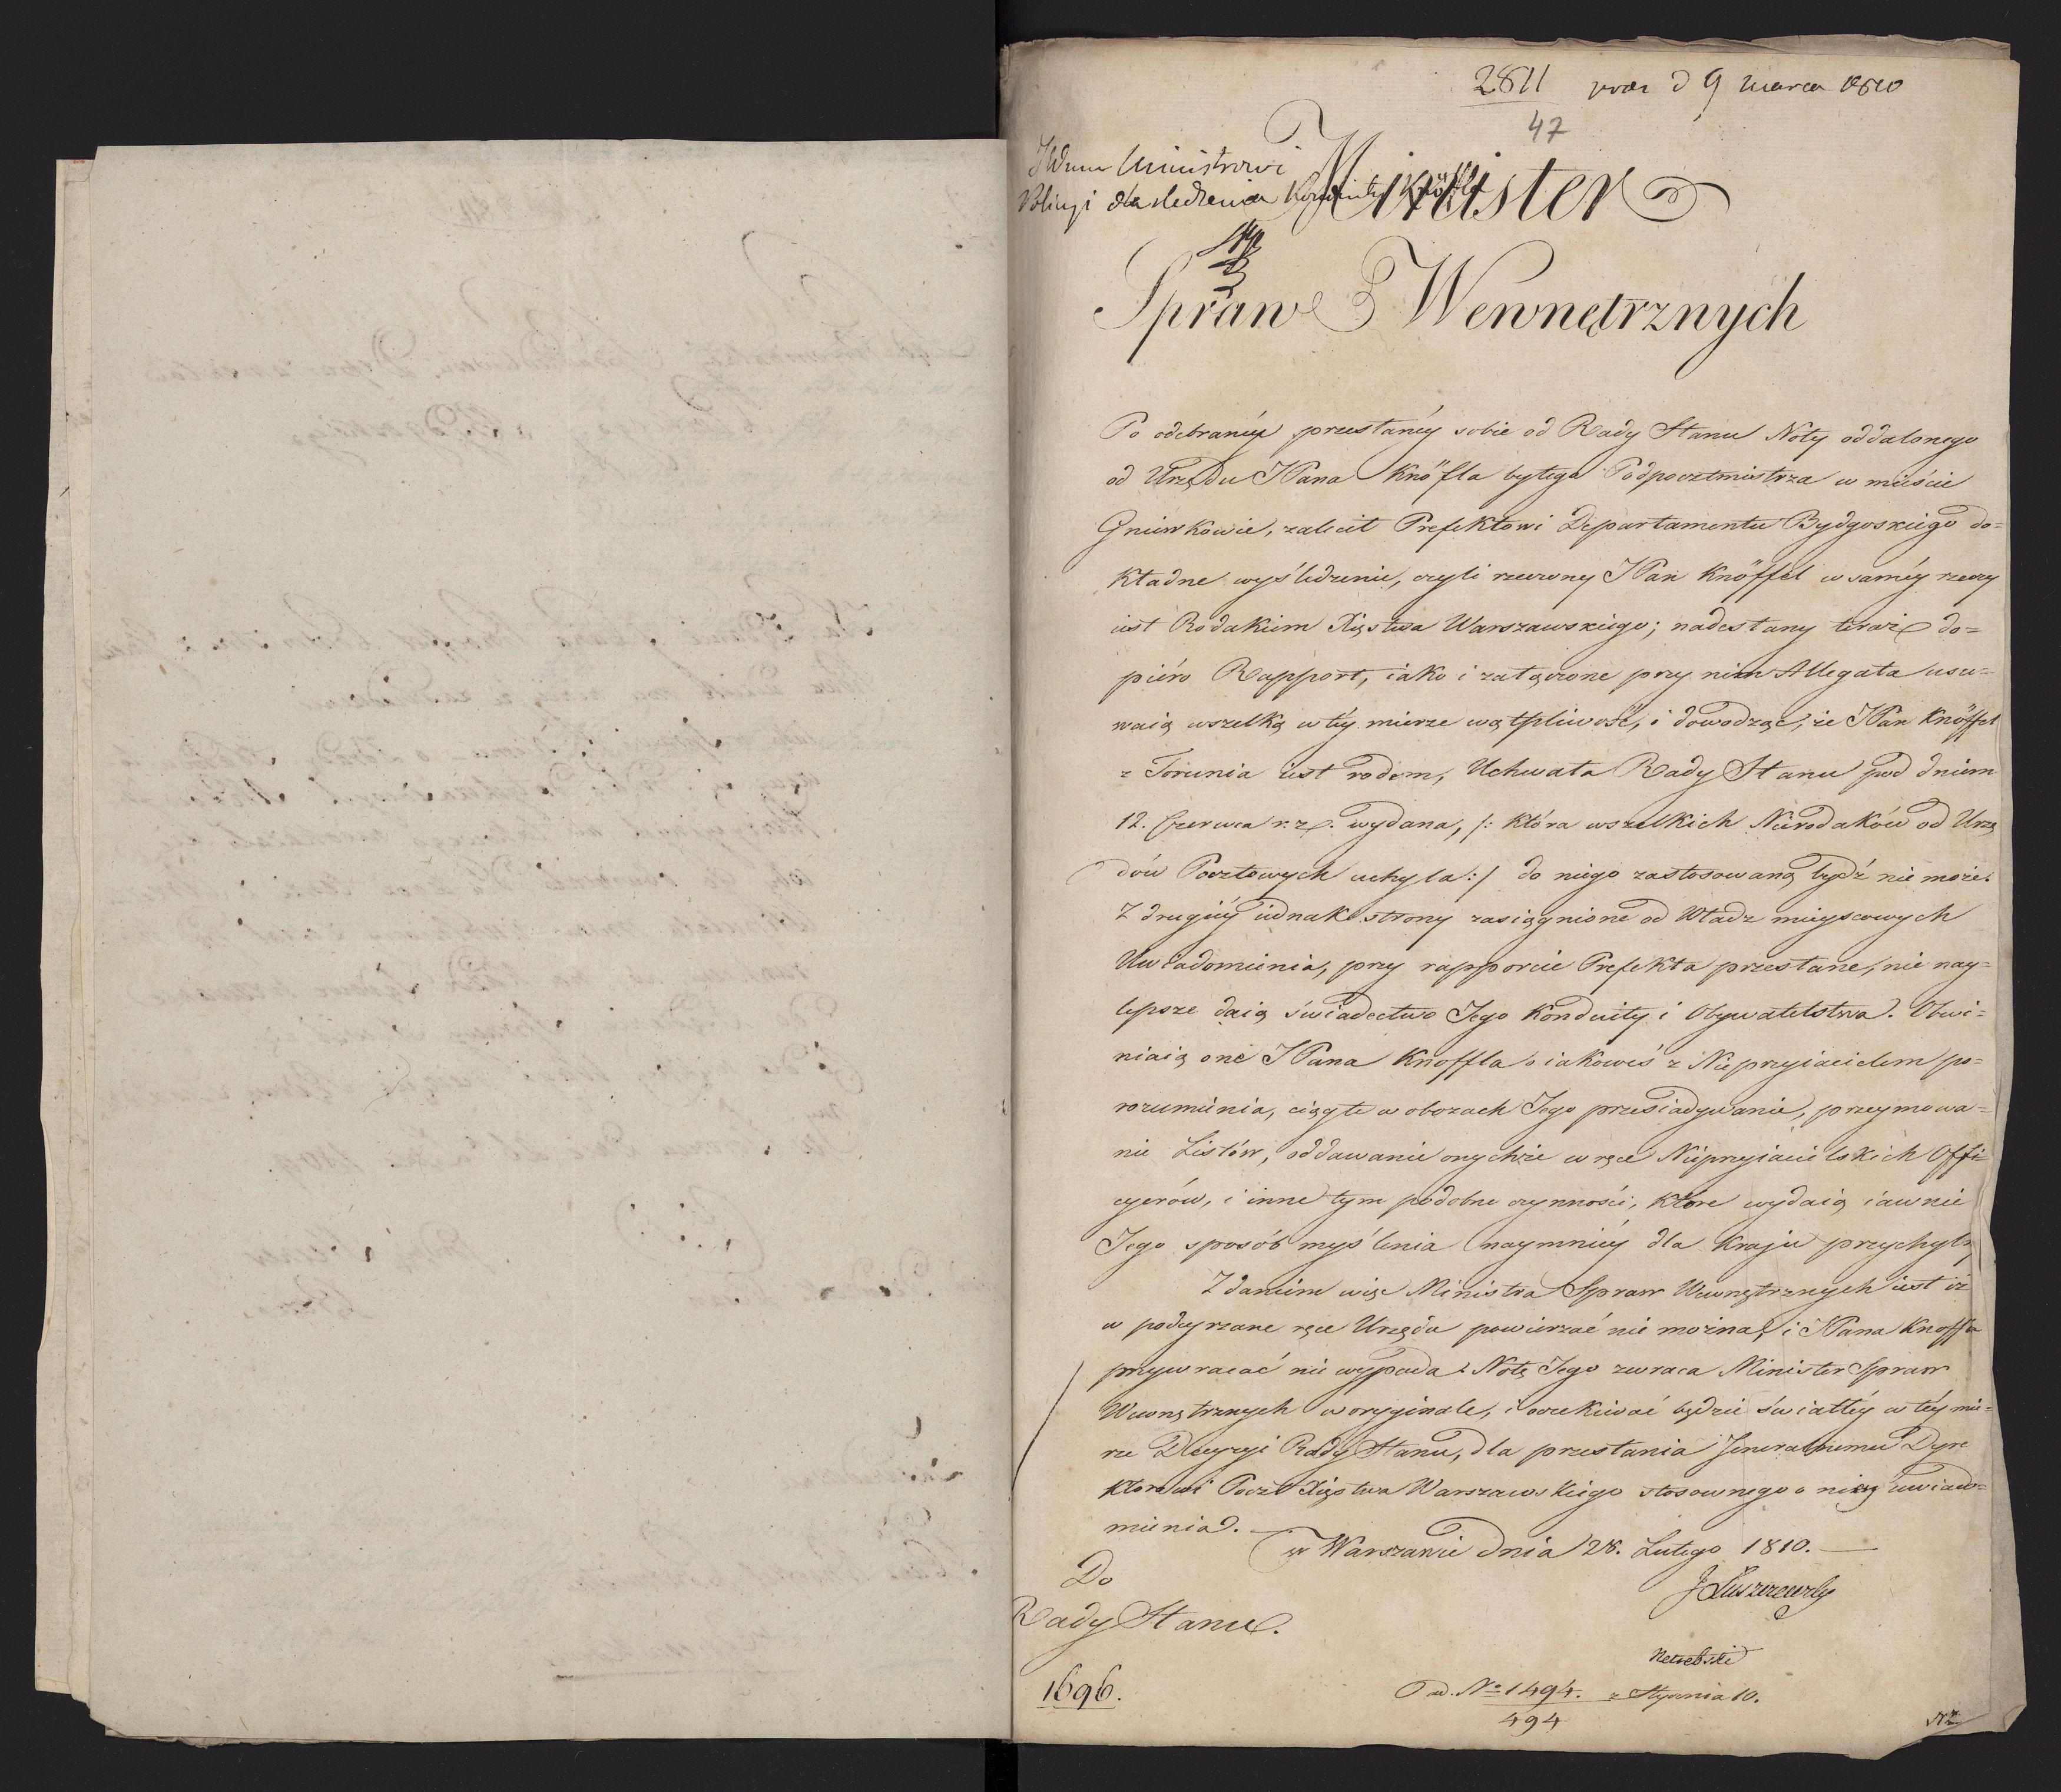 2811 prae d 9 marca 1810
47
JWmu Ministrowi
Policyi dla śledzenia Konduity Knöffla
Minister
Spraw Wewnętrznych
Po odebranéy przesłanéy sobie od Rady Stanu Noty oddalonego
od Urzędu JPana Knöfla byłego Podpocztmistrza w mieście
Gniewkowie, zalecił Prefektowi Departamentu Bydgoskiego do=
kładne wyśledzenie, czyli rzeczony JPan Knöffel w saméy rzeczy
iest Rodakiem Xięstwa Warszawskiego; nadesłany teraz do=
piéro Rapport, iako i załączone przy nim Allegata usu=
waią wszelką w téy mierze wątpliwość, i dowodząc, że JPan Knöffel
z Torunia iest rodem, Uchwała Rady Stanu pod dniem
12. Czerwca r. z. wydana, /: która wszelkich Nierodaków od Urzę
dów Pocztowych uchyla :/ do niego zastosowaną bydź nie może.
Z drugiéy iednak strony zasiągnione od Władz mieyscowych
Uwiadomienia, przy rapporcie Prefekta przesłane, nie nay=
lepsze daią świadectwo Jego Konduity i Obywatelstwa. Obwi=
niaią one JPana Knoffla o iakoweś z Nieprzyiacielem po=
rozumienia, ciągłe w obozach Jego przesiadywanie, przeymowa=
nie Listów, oddawanie onychże w ręce Nieprzyiacielskich Offi=
cyerów, i inne tym podobne czynności, które wydaią iawnie
Jego sposób myślenia naymniéy dla Kraju przychylny
Zdaniem więc Ministra Spraw Wewnętrznych iest iż
w podeyrzane ręce Urzędu powierzać nie można, i JPana Knoffla
przywracać nie wypada. Notę Jego zwraca Minister Spraw
Wewnętrznych w oryginale, i oczekiwać będzie światłéy w téy mie=
rze Decyzyi Rady Stanu, dla przesłania Jeneralnemu Dyre
ktorowi Poczt Xięstwa Warszawskiego stosownego o niéy uwiado=
mienia.
w Warszawie dnia 28. Lutego 1810.
Do
Rady Stanu.
J Łuszczewski
1696.
ad. No 1494. z Stycznia 10.
494